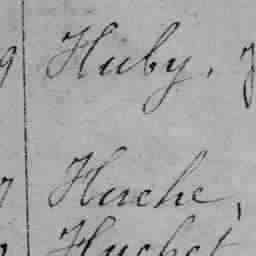 9 Huby,
7 Huche,
Huchet